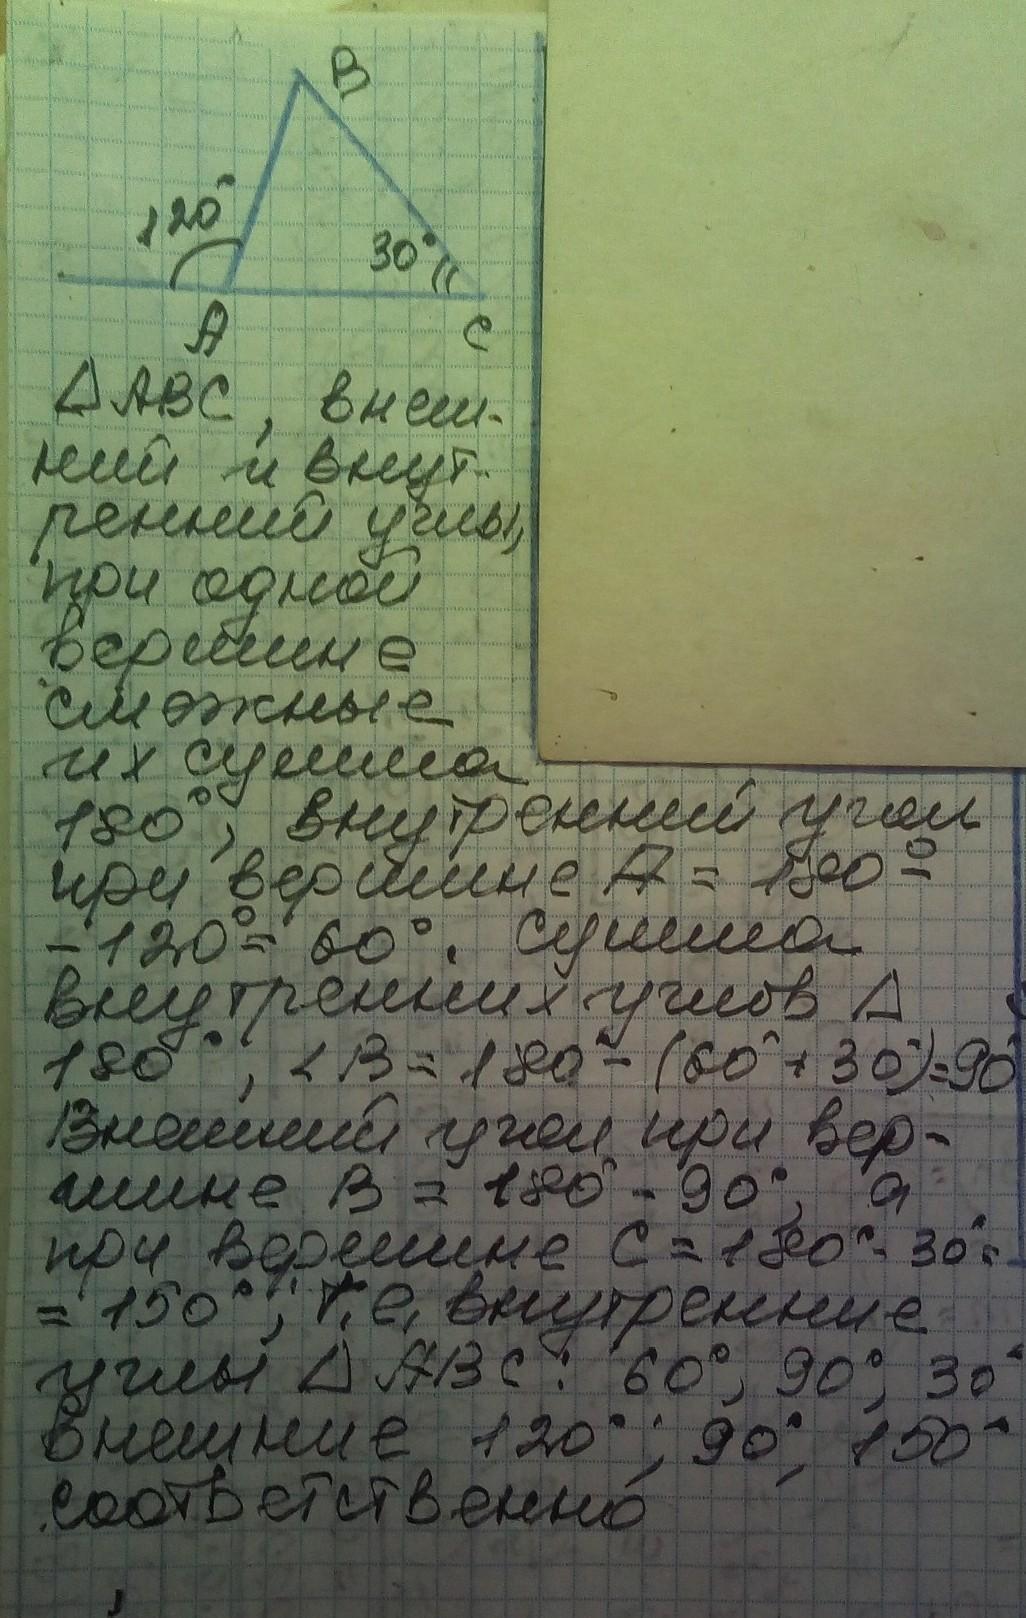 B
120°
30°
A
C
△ABC, внеш-
ний и внут-
ренний углы,
при одной
вершине
смежные
их сумма
180°, внутренний угол
при вершине A = 180°-
- 120° = 60°. Сумма
внутренних углов △
180°, ∠B = 180° - (60° + 30°) = 90°
Внешний угол при вер-
шине B = 180° - 90°, а
при вершине C = 180° - 30° =
= 150°; т.е. внутренние
углы △ABC: 60°, 90°, 30°
внешние 120°; 90°, 150°
соответственно
,